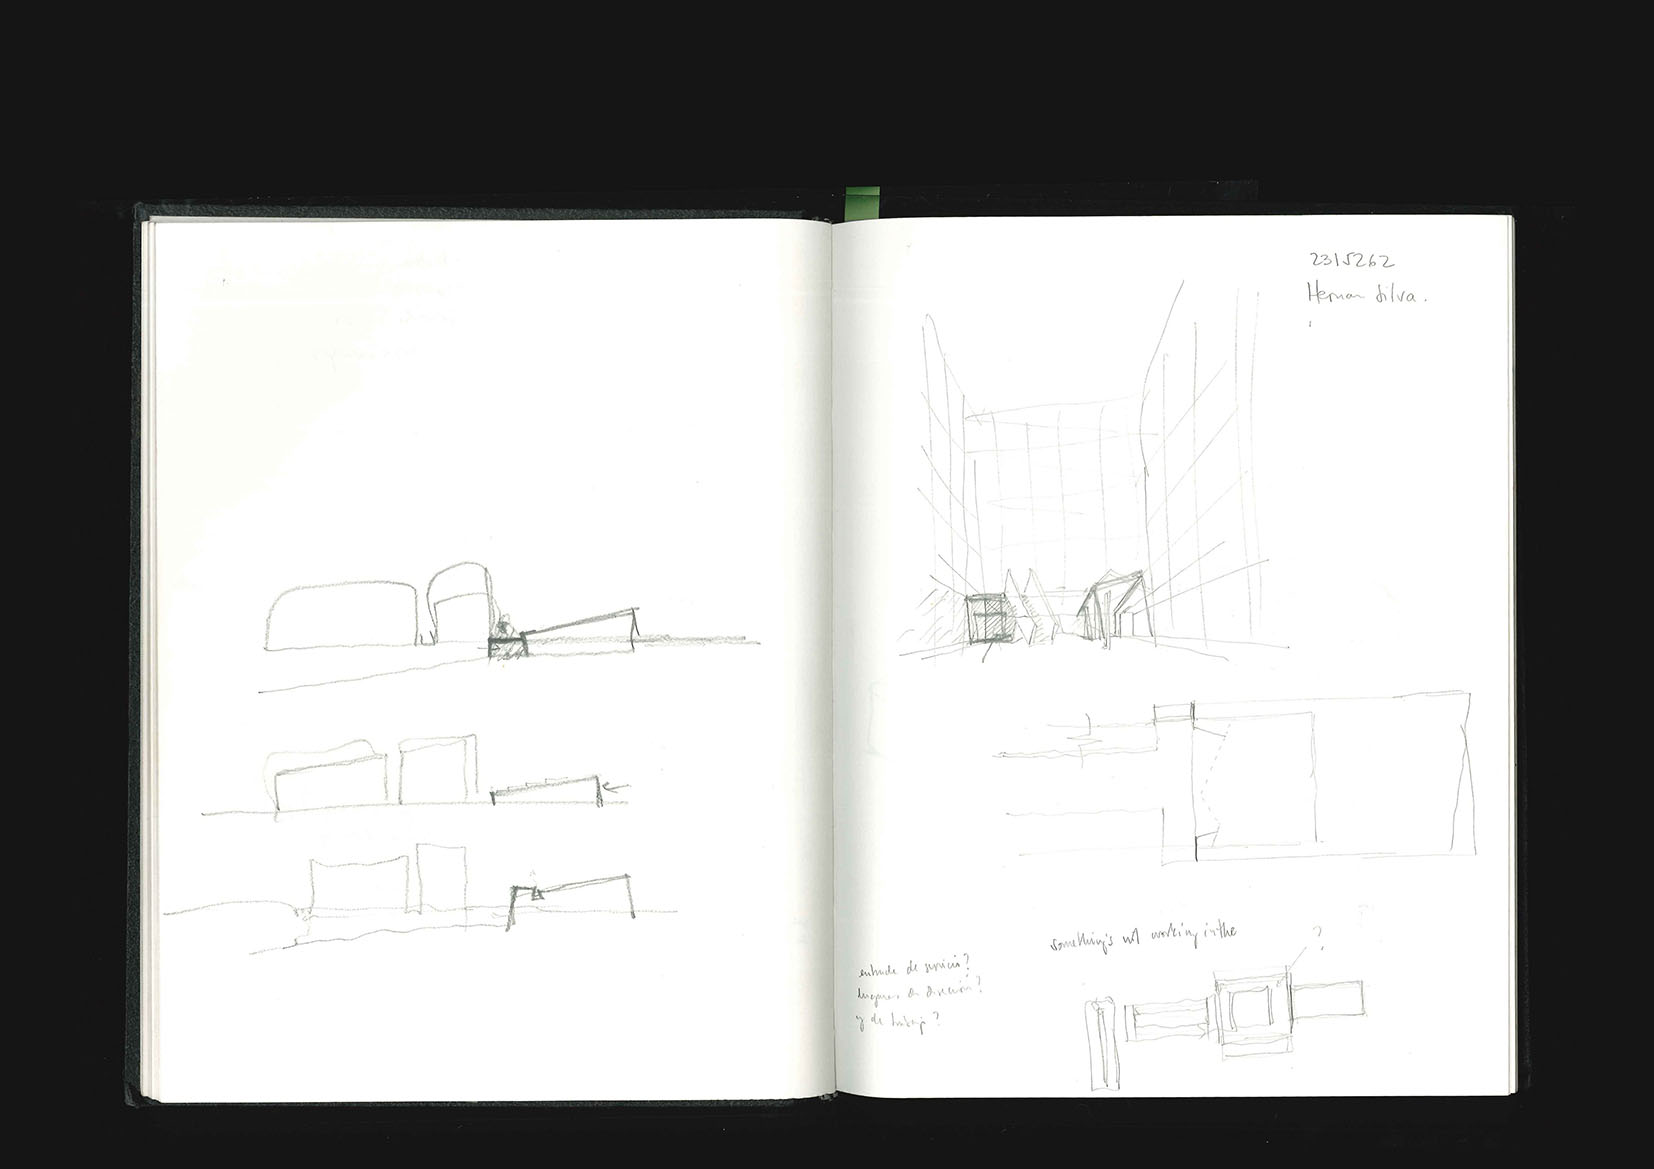 2315262
Hernan Silva.
something's not working in the
?
entrada de servicio?
lugares de dirección?
y de trabajo?